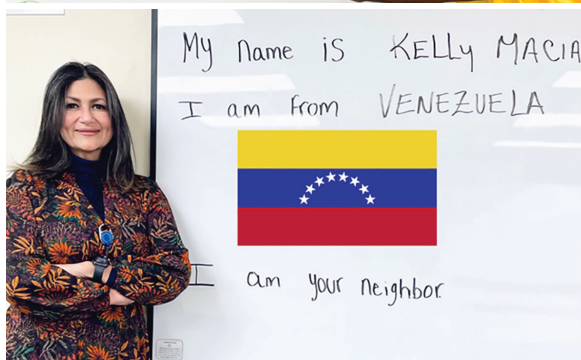 My name is KELLY MACIA
I am from VENEZUELA
I am your neighbor.